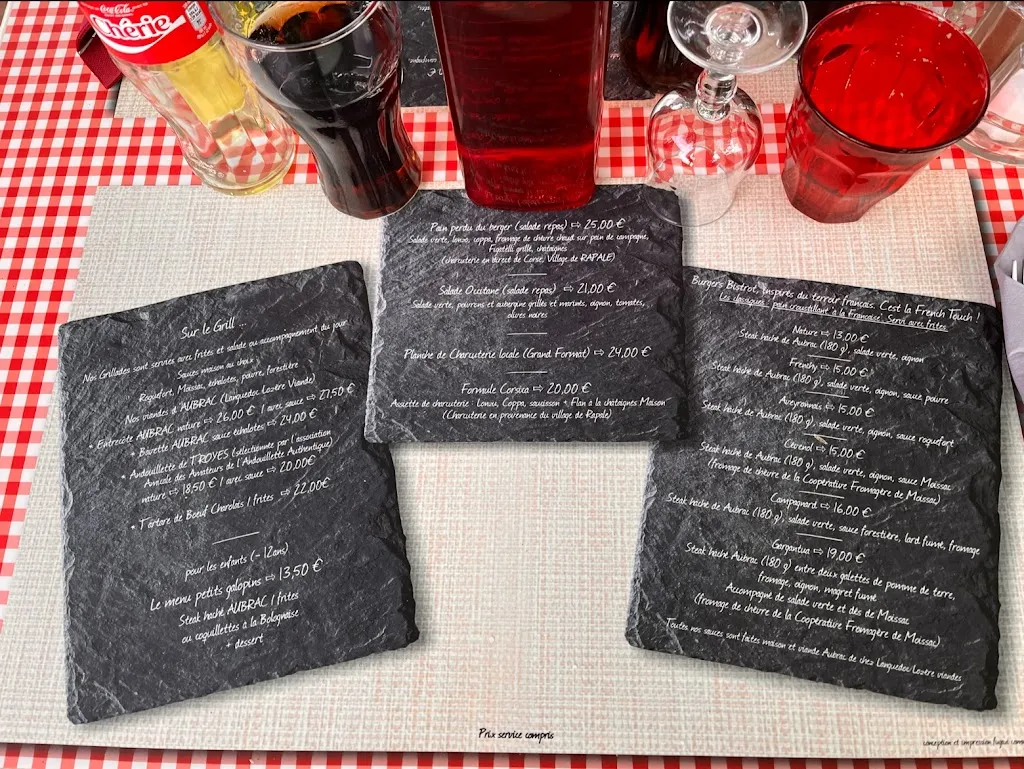 Coca-Cola
Chérie
Sur le Grill ...
Nos Grillades sont servies avec frites et salade ou accompagnement du jour
Sauces maison au choix :
Roquefort, Moissac, échalotes, poivre, forestière
Nos viandes d'AUBRAC (Languedoc Lozère Viande)
• Entrecôte AUBRAC nature ⇨ 26,00 € / avec sauce ⇨ 27,50 €
Bavette AUBRAC sauce échalotes ⇨ 24,00 €
• Andouillette de TROYES (sélectionnée par l'association
Amicale des Amateurs de l'Andouillette Authentique)
nature ⇨ 18,50 € / avec sauce ⇨ 20,00€
• Tartare de Boeuf Charolais / frites ⇨ 22,00€
pour les enfants (- 12ans)
Le menu petits galopins ⇨ 13,50 €
Steak haché AUBRAC / frites
ou coquillettes à la Bolognaise
+ dessert
Pain perdu du berger (salade repas) ⇨ 25,00 €
Salade verte, lonzo, coppa, fromage de chèvre chaud sur pain de campagne,
Figatelli grillé, chataignes
(charcuterie en direct de Corse, Village de RAPALE)
Salade Occitane (salade repas) ⇨ 21,00 €
Salade verte, poivrons et aubergine grillés et marinés, oignon, tomates,
olives noires
Planche de Charcuterie locale (Grand Format) ⇨ 24,00 €
Formule Corsica ⇨ 20,00 €
Assiette de charcuterie : Lonzu, Coppa, saucisson + Flan à la chataignes Maison
(Charcuterie en provenance du village de Rapale)
Burgers Bistrot, inspirés du terroir français. C'est la French Touch !
Les classiques : pain croustillant à la Française. Servi avec frites
Nature ⇨ 13,00 €
Steak haché de Aubrac (180 g), salade verte, oignon
Frenchy ⇨ 15,00 €
Steak haché de Aubrac (180 g), salade verte, oignon, sauce poivre
Aveyronnais ⇨ 15,00 €
Steak haché de Aubrac (180 g), salade verte, oignon, sauce roquefort
Cévenol ⇨ 15,00 €
Steak haché de Aubrac (180 g), salade verte, oignon, sauce Moissac
(fromage de chèvre de la Coopérative Fromagère de Moissac)
Campagnard ⇨ 16,00 €
Steak haché de Aubrac (180 g), salade verte, sauce forestière, lard fumé, fromage
Gargantua ⇨ 19,00 €
Steak haché Aubrac (180 g) entre deux galettes de pomme de terre,
fromage, oignon, magret fumé
Accompagné de salade verte et dés de Moissac
(fromage de chèvre de la Coopérative Fromagère de Moissac)
Toutes nos sauces sont faites maison et viande Aubrac de chez Languedoc Lozère viandes
Prix service compris
conception et impression